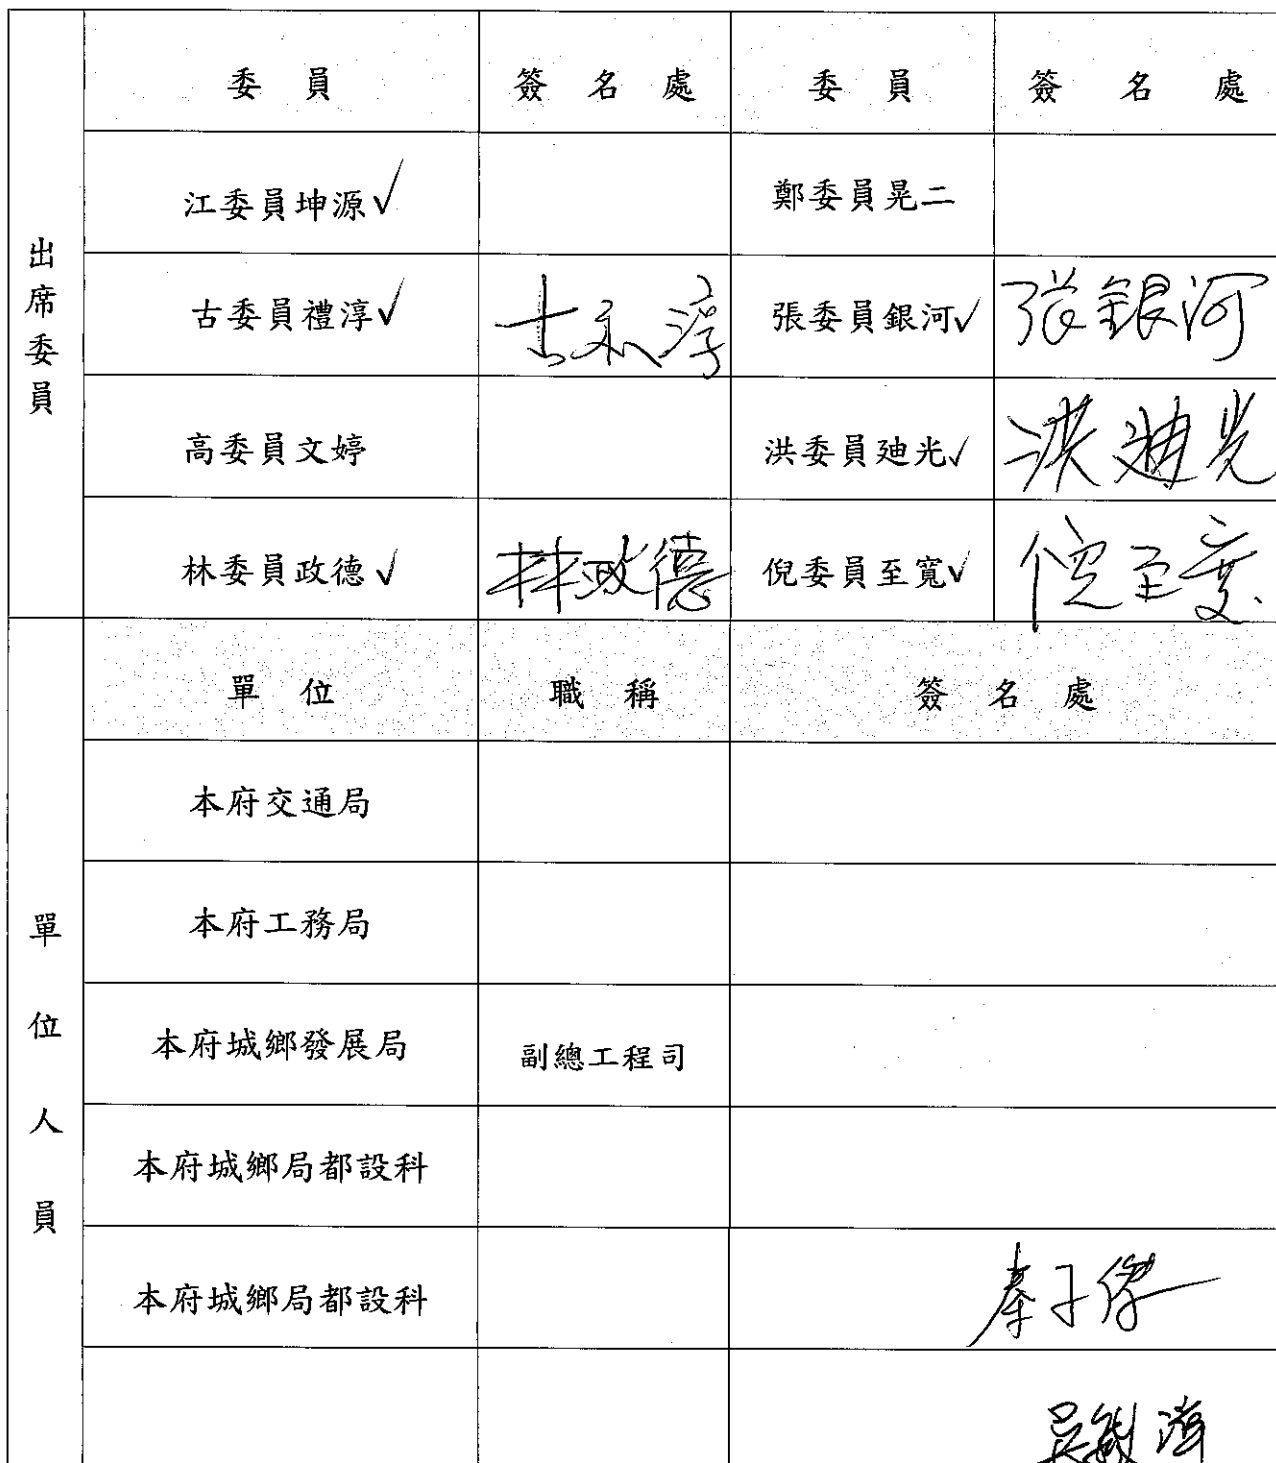 委員 簽名處 委員 簽名處
出席委員
江委員坤源✓ 鄭委員晃二
古委員禮淳✓ 古礼淳 張委員銀河✓ 張銀河
高委員文婷 洪委員廸光✓ 洪廸光
林委員政德✓ 林政德 倪委員至寬✓ 倪至寬
單位 職稱 簽名處
單位人員
本府交通局
本府工務局
本府城鄉發展局 副總工程司
本府城鄉局都設科
本府城鄉局都設科 秦子傑